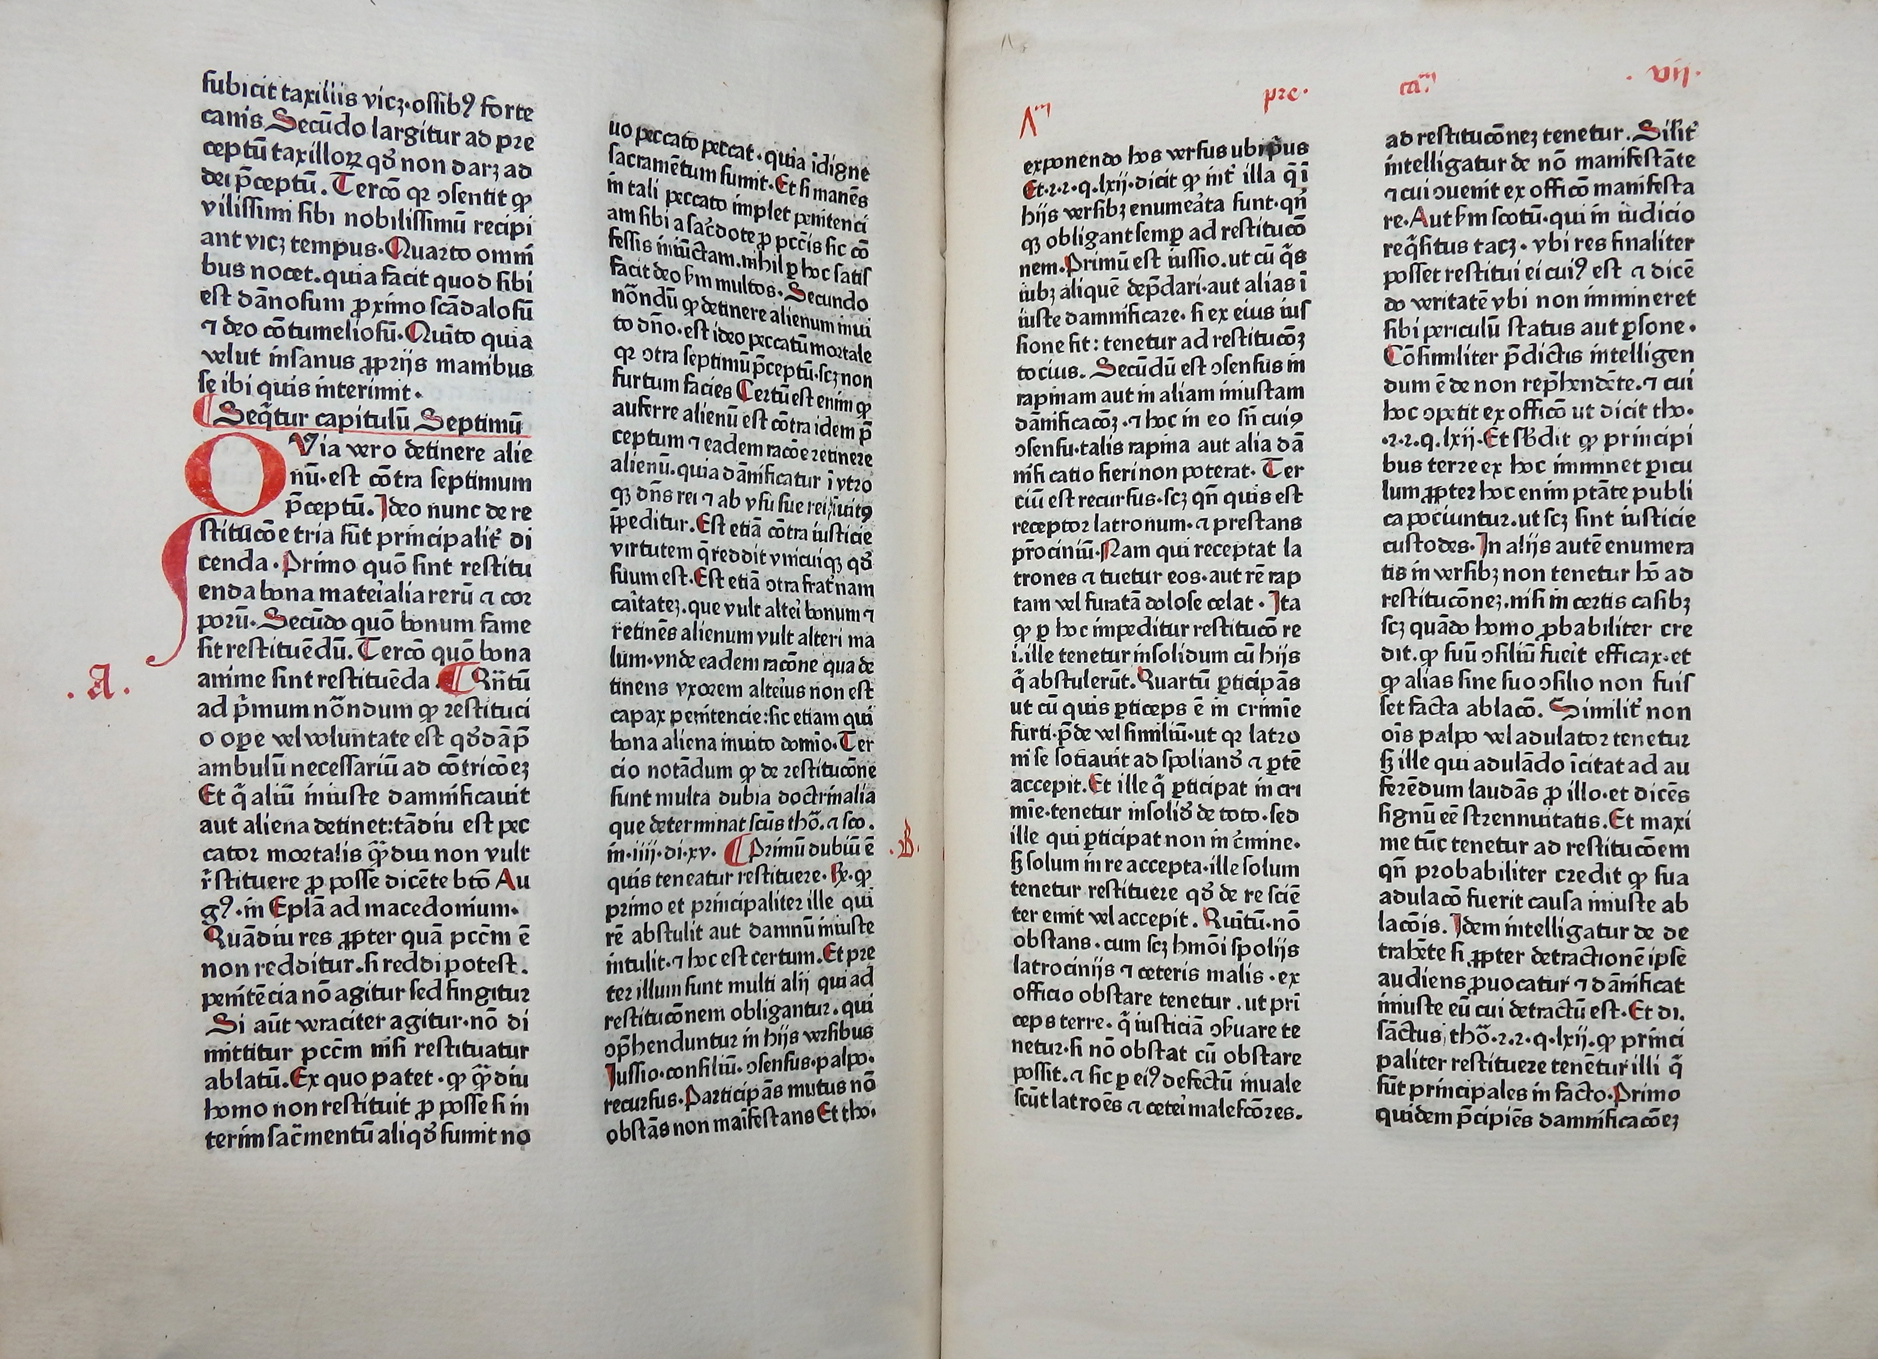 subicit taxillis vicꝫ·ossibꝰ forte
canis. Secūdo largitur ad pre
ceptū taxilloꝝ qð non darꝫ ad
dei p̄ceptū. Tercō qꝛ ↄsentit ꝙ
vilissimi sibi nobilissimū recipi
ant vicꝫ tempus. Quarto omni
bus nocet. quia facit quod sibi
est dānosum ꝓximo scādalosū
⁊ deo cōtumeliosū. Quīto quia
velut insanus ꝓprijs manibus
se ibi quis interimit.
Seq̄tur capitulū Septimū
QVia vero detinere alie
nū·est cōtra septimum
p̄ceptū. Ideo nunc de re
stitucōe tria sūt principalit̓ di
cenda. Primo quō sint restitu
enda bona mate̓ialia rerū ⁊ cor
porū. Secūdo quō bonum fame
sit restituēdū. Tercō quō bona
anime sint restituēda. Qn̄tū
·A·
ad p̄mum nōndum ꝙ restituci
o ope vel voluntate est qðdā p̄
ambulū necessariū ad cōtricōeꝫ
Et q̄ aliū iniuste damnificauit
aut aliena detinet: tādiu est pec
cator mortalis qᷓdiu non vult
r̓stituere ꝓ posse dicēte btō Au
gꝰ·in Epl̄a ad macedonium.
Quādiu res ꝓpter quā pccm̄ ē
non redditur. si reddi potest.
penitēcia nō agitur sed fingitur
Si aūt veraciter agitur·nō di
mittitur pccm̄ nisi restituatur
ablatū. Ex quo patet·ꝙ qᷓdiu
homo non restituit ꝓ posse si in
terim sac̄mentū aliqð sumit no
uo peccato peccat·quia īdigne
sacramētum sumit. Et si manēs
in tali peccato implet penitenci
am sibi a sac̄dote ꝓ pcc̄is sic cō
fessis iniūctam. nihil ꝑ hoc satis
facit deo ẜm multos. Secundo
nōndū ꝙ detinere alienum inui
to dn̄o·est ideo peccatū mortale
qꝛ ↄtra septimū p̄ceptū·scꝫ non
furtum facies Certū est enim ꝙ
auferre alienū est cōtra idem p̄
ceptum ⁊ eadem racōe retinere
alienū. quia dānificatur ī vtro
qꝫ dn̄s rei ⁊ ab vsu sue rei iuitꝰ
īpeditur. Est etiā cōtra iusticie
virtutem q̄ reddit vnicuiqꝫ qð
suum est. Est etiā ↄtra frat̓nam
caītateꝫ. que vult alte̓i bonum ⁊
retinēs alienum vult alteri ma
lum·vnde eadem racōne qua de
tinens vxorem alte̓ius non est
capax penitencie: sic etiam qui
bona aliena inuito domīo. Ter
cio notādum ꝙ de restitucōne
sunt multa dubia doctrinalia
que determinat sc̄us thō. ⁊ sco.
in·iiij·di·xv. Primū dubiū ē
·B·
quis teneatur restituere. ℟. ꝙ
primo et principaliter ille qui
rē abstulit aut damnū iniuste
intulit·⁊ hoc est certum. Et pre
ter illum sunt multi alij qui ad
restitucōnem obligantur. qui
ↄp̄henduntur in hijs versibus
Jussio·consiliū·ↄsensus·palpo·
recursus·Participās mutus nō
obstās non maīfestans Et tho·
A͞m
pre·
ca͞m
·vij·
exponendo hos versus ubi p̄us
Et·2·2·q·lxij·dicit ꝙ int̓ illa q̄ ī
hijs versibꝫ enumeāta sunt·qn̄
qꝫ obligant semꝑ ad restitucō
nem. Primū est iussio. ut cū q̄s
iubꝫ aliquē dep̄dari·aut alias ī
iuste damnificare. si ex eius ius
sione fit: tenetur ad restitucōꝫ
tocius. Secūdū est ↄsensus in
rapinam aut in aliam iniustam
dānificacōꝫ·⁊ hoc in eo sn̄ cuiꝰ
ↄsensu·talis rapina aut alia dā
nificatio fieri non poterat. Ter
ciū est recursus·scꝫ qn̄ quis est
receptor latronum·⁊ prestans
pr̄ociniū. Nam qui receptat la
trones ⁊ tuetur eos·aut rē rap
tam vel furatā dolose celat. Ita
ꝙ ꝑ hoc impeditur restitucō re
i. ille tenetur insolidum cū hijs
q̄ abstulerūt. Quartū ꝑticipās
ut cū quis ꝑticeps ē in crimīe
furti·p̄de vel similiū·ut qꝛ latro
ni se sotiauit ad spoliand̓ ⁊ ꝑtē
accepit. Et ille q̄ ꝑticipat in cri
mīe·tenetur insolið de toto·sed
ille qui ꝑticipat non in c̓mine.
ẜ solum in re accepta·ille solum
tenetur restituere qð de re sciē
ter emit vel accepit. Quītū·nō
obstans·cum scꝫ hmōi spolijs
latrocinijs ⁊ ceteris malis·ex
officio obstare tenetur. ut pri
ceps terre. q̄ iusticiā ↄs̓uare te
netur·si nō obstat cū obstare
possit. ⁊ sic ꝑ eiꝰ defectū inuale
scūt latroēs ⁊ cete̓i malefc̄ores.
ad restitucōneꝫ tenetur. Silit̓
intelligatur de nō manifestāte
⁊ cui ↄuenit ex officō manifesta
re. Aut ẜm scotū·qui in iudicio
req̄situs tacꝫ·vbi res finaliter
posset restitui ei cuiꝰ est ⁊ dicē
do veritatē vbi non immineret
sibi periculū status aut ꝑsone.
Cōsimiliter p̄dictis intelligen
dum ē de non rep̄hendēte·⁊ cui
hoc ↄpetit ex officō ut dicit tho·
·2·2·q·lxij·Et sb̄dit ꝙ principi
bus terre ex hoc imminet ꝑicu
lum ꝓpter hoc enim ptāte publi
ca pociuntur. ut scꝫ sint iusticie
custodes. In alijs autē enumera
tis in versibꝫ non tenetur hō ad
restitucōneꝫ. nisi in certis casibꝫ
scꝫ quādo homo ꝓbabiliter cre
dit. ꝙ suū ↄsiliū fue̓it efficax·et
ꝙ alias sine suo ↄsilio non fuis
set facta ablacō. Similit̓ non
oīs palpo vel adulator tenetur
ẜ ille qui adulādo īcitat ad au
ferēdum laudās ꝓ illo·et dicēs
signū eē strennuitatis. Et maxi
me tūc tenetur ad restitucōem
qn̄ probabiliter credit ꝙ sua
adulacō fuerit causa iniuste ab
lacōis. Idem intelligatur de de
trahēte si ꝓpter detractionē ip̄se
audiens ꝓuocatur ⁊ dānificat
iniuste eū cui detractū est. Et di.
sāctus thō·2·2·q·lxij·ꝙ princi
paliter restituere tenētur illi q̄
sūt principales in facto. Primo
quidem p̄cipiēs damnificacōeꝫ